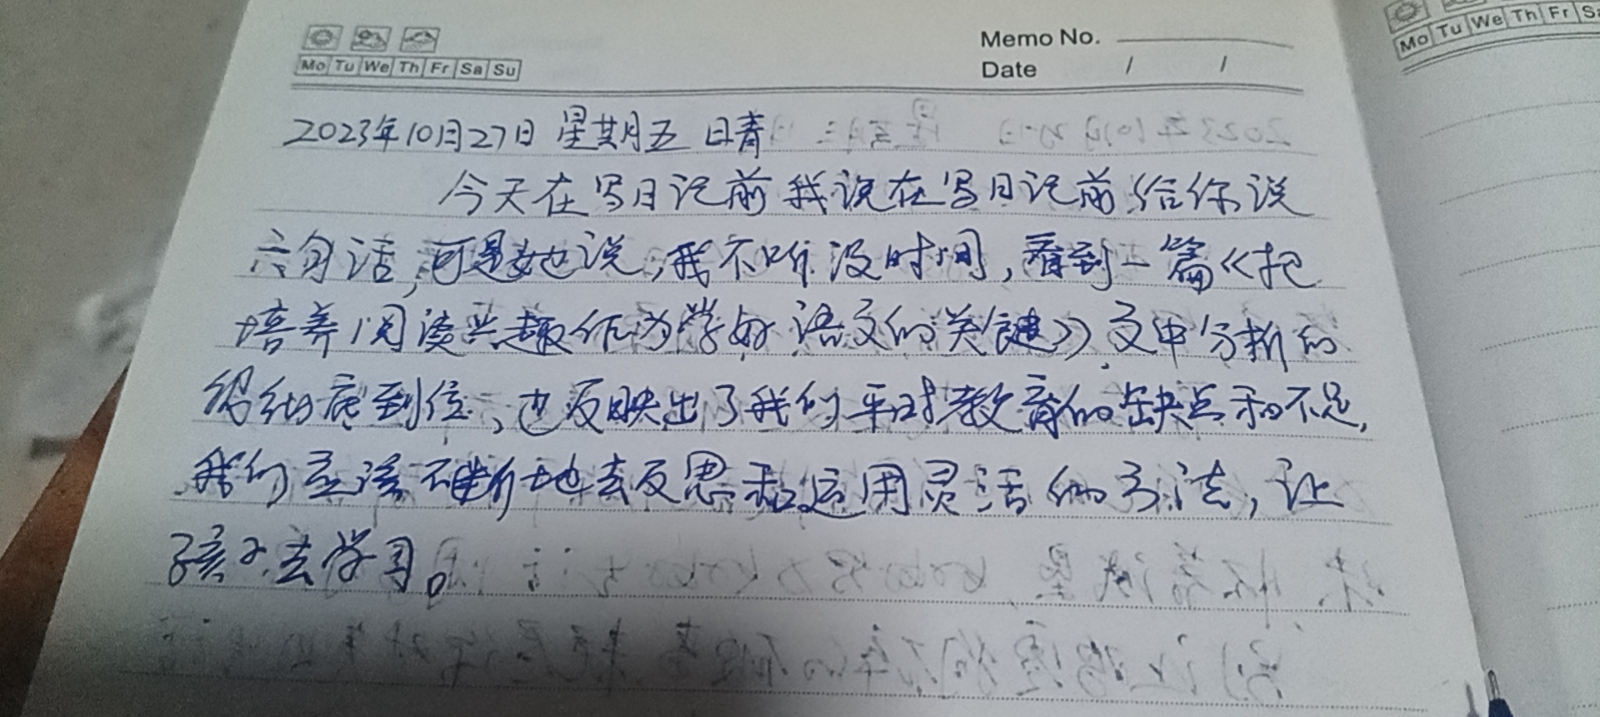 Memo No.
Mo Tu We Th Fr Sa Su
Date / /
Mo Tu We Th Fr Sa
2023年10月27日 星期五 日青
今天在写日记前我说在写日记前给你说
六句话,可是她说,我不听没时间,看到一篇《把
培养阅读兴趣作为学好语文的关键》文中分析的
很彻底到位,也反映出了我们平时教育的缺点和不足,
我们应该不断地去反思和运用灵活的方法,让
孩子去学习。